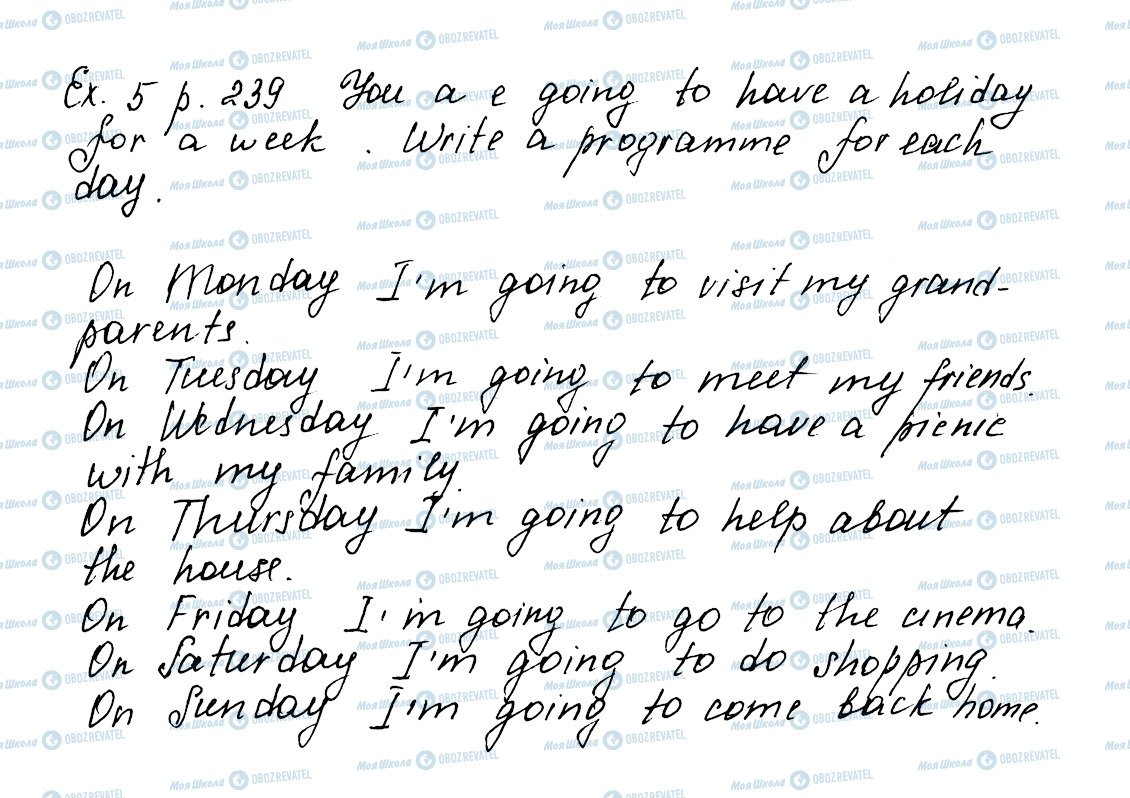 Ex. 5 p. 239 You a e going to have a holiday
for a week . Write a programme for each
day.
On Monday I'm going to visit my grand-
parents.
On Tuesday I'm going to meet my friends.
On Wednesday I'm going to have a picnic
with my family.
On Thursday I'm going to help about
the house.
On Friday I'm going to go to the cinema.
On Saturday I'm going to do shopping.
On Sunday I'm going to come back home.